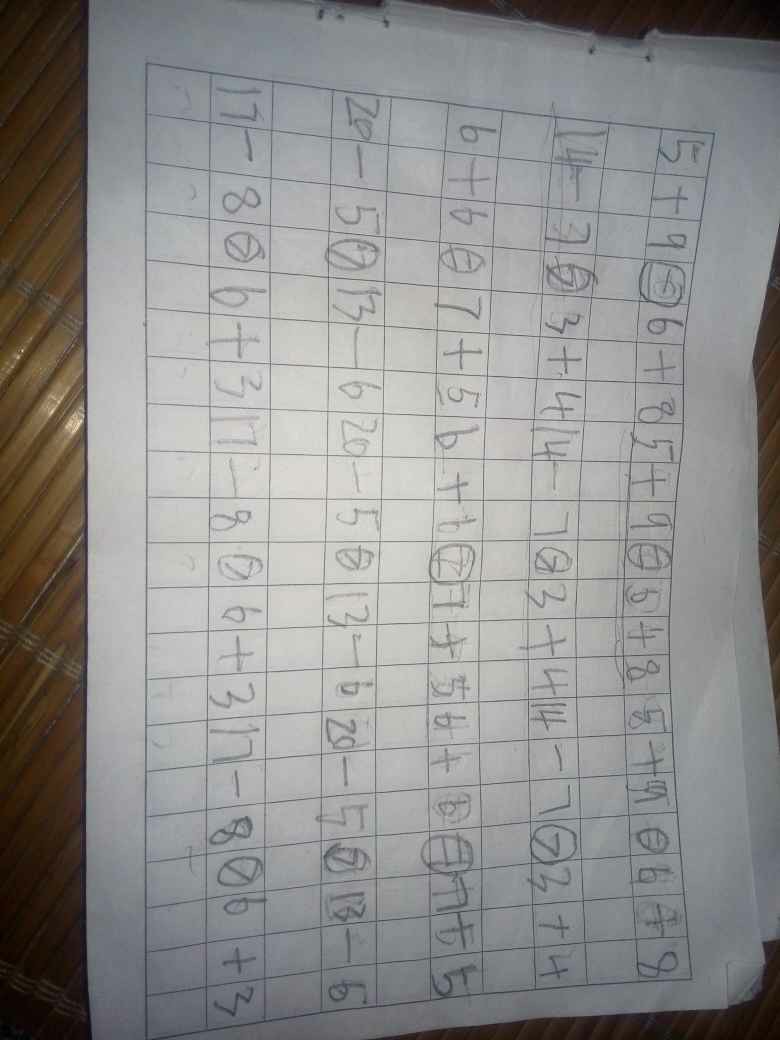 5+9○6+8 5+9○6+8 5+9○6+8
14-7○3+4 14-7○3+4 14-7○3+4
6+6○7+5 6+6○7+5 6+6○7+5
20-5○13-6 20-5○13-6 20-5○13-6
17-8○6+3 17-8○6+3 17-8○6+3